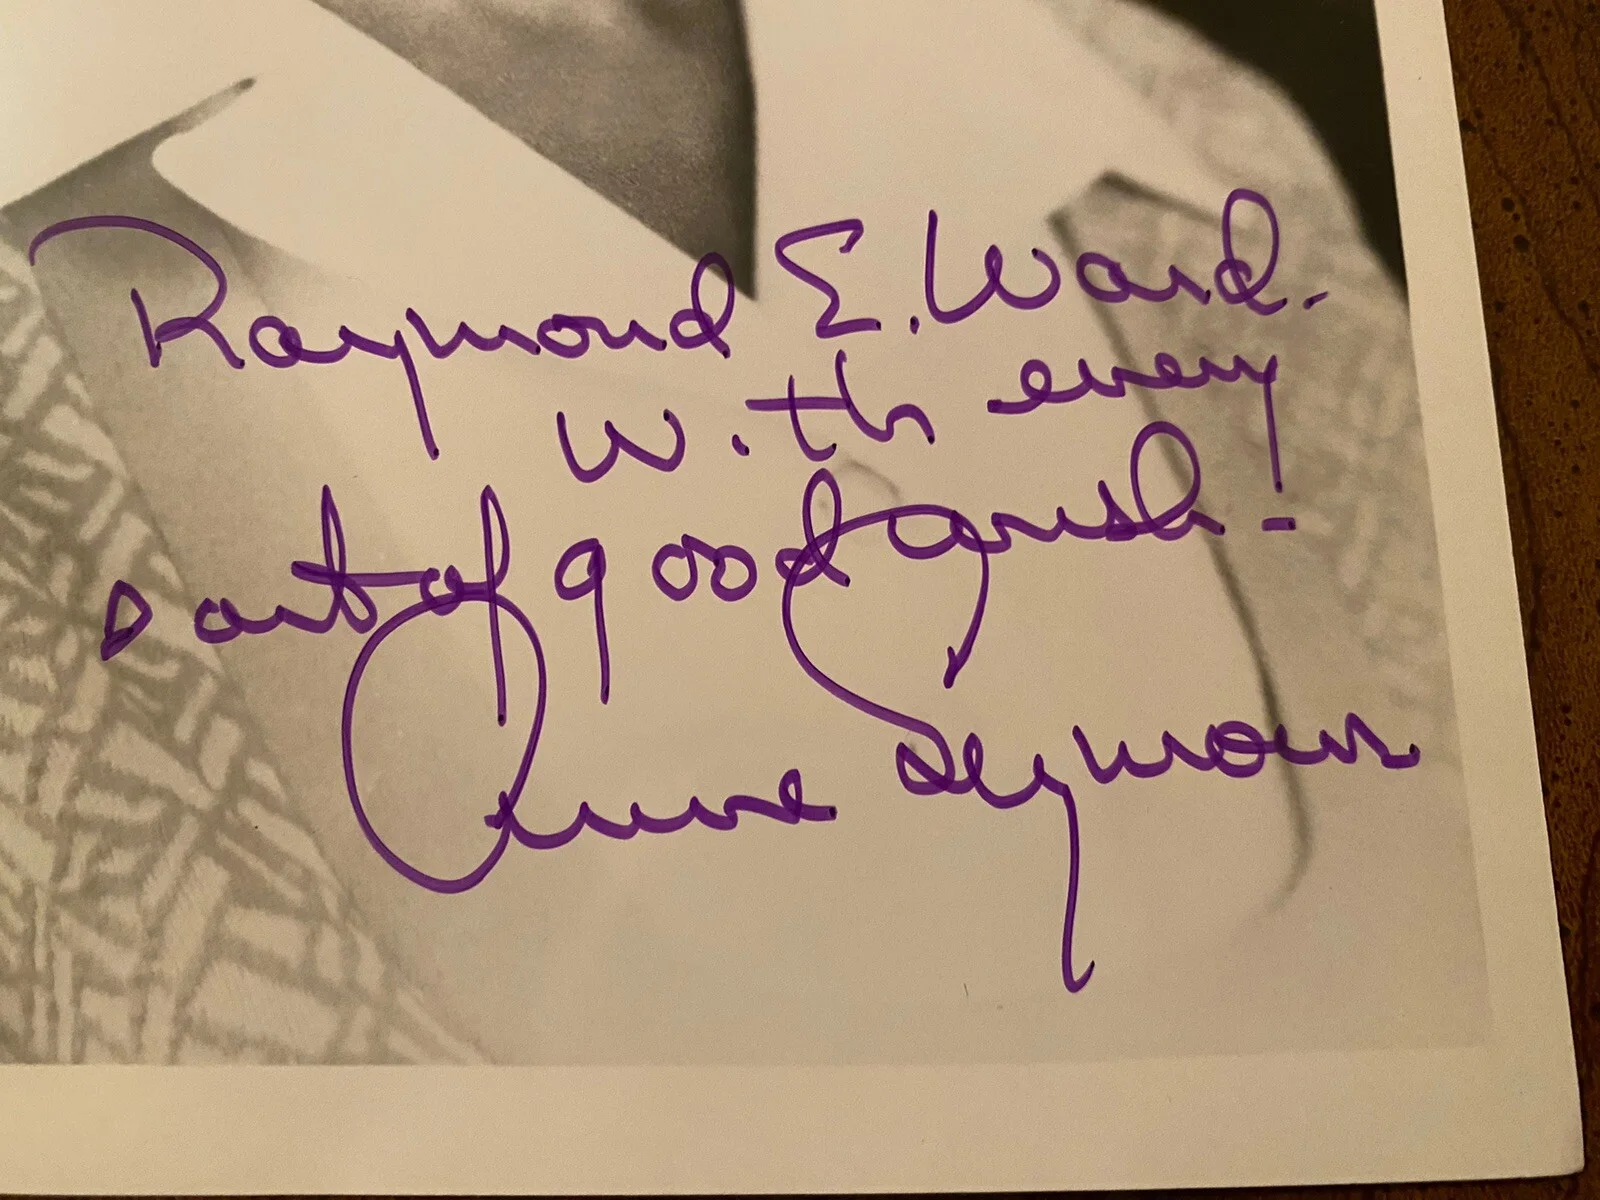 Raymond E. Ward.
With every
sort of good wish!
Anne Seymour